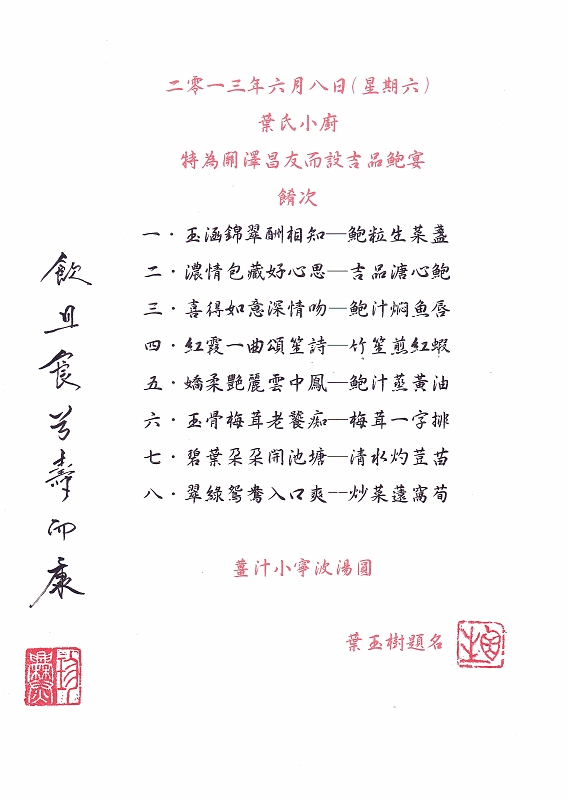 二零一三年六月八日(星期六)
葉氏小廚
特為關澤昌友而設吉品鮑宴
餚次
一·玉涵錦翠酬相知—鮑粒生菜盞
二·濃情包藏好心思—吉品溏心鮑
三·喜得如意深情吻—鮑汁焖魚唇
四·紅霞一曲頌笙詩—竹笙煎紅蝦
五·嬌柔艷麗雲中鳳—鮑汁蒸黃油
六·玉骨梅茸老饕痴—梅茸一字排
七·碧葉朶朶開池塘—清水灼荳苗
八·翠綠鴛鴦入口爽--炒菜薳窩荀
薑汁小寧波湯圓
葉玉樹題名
飲且食兮壽而康